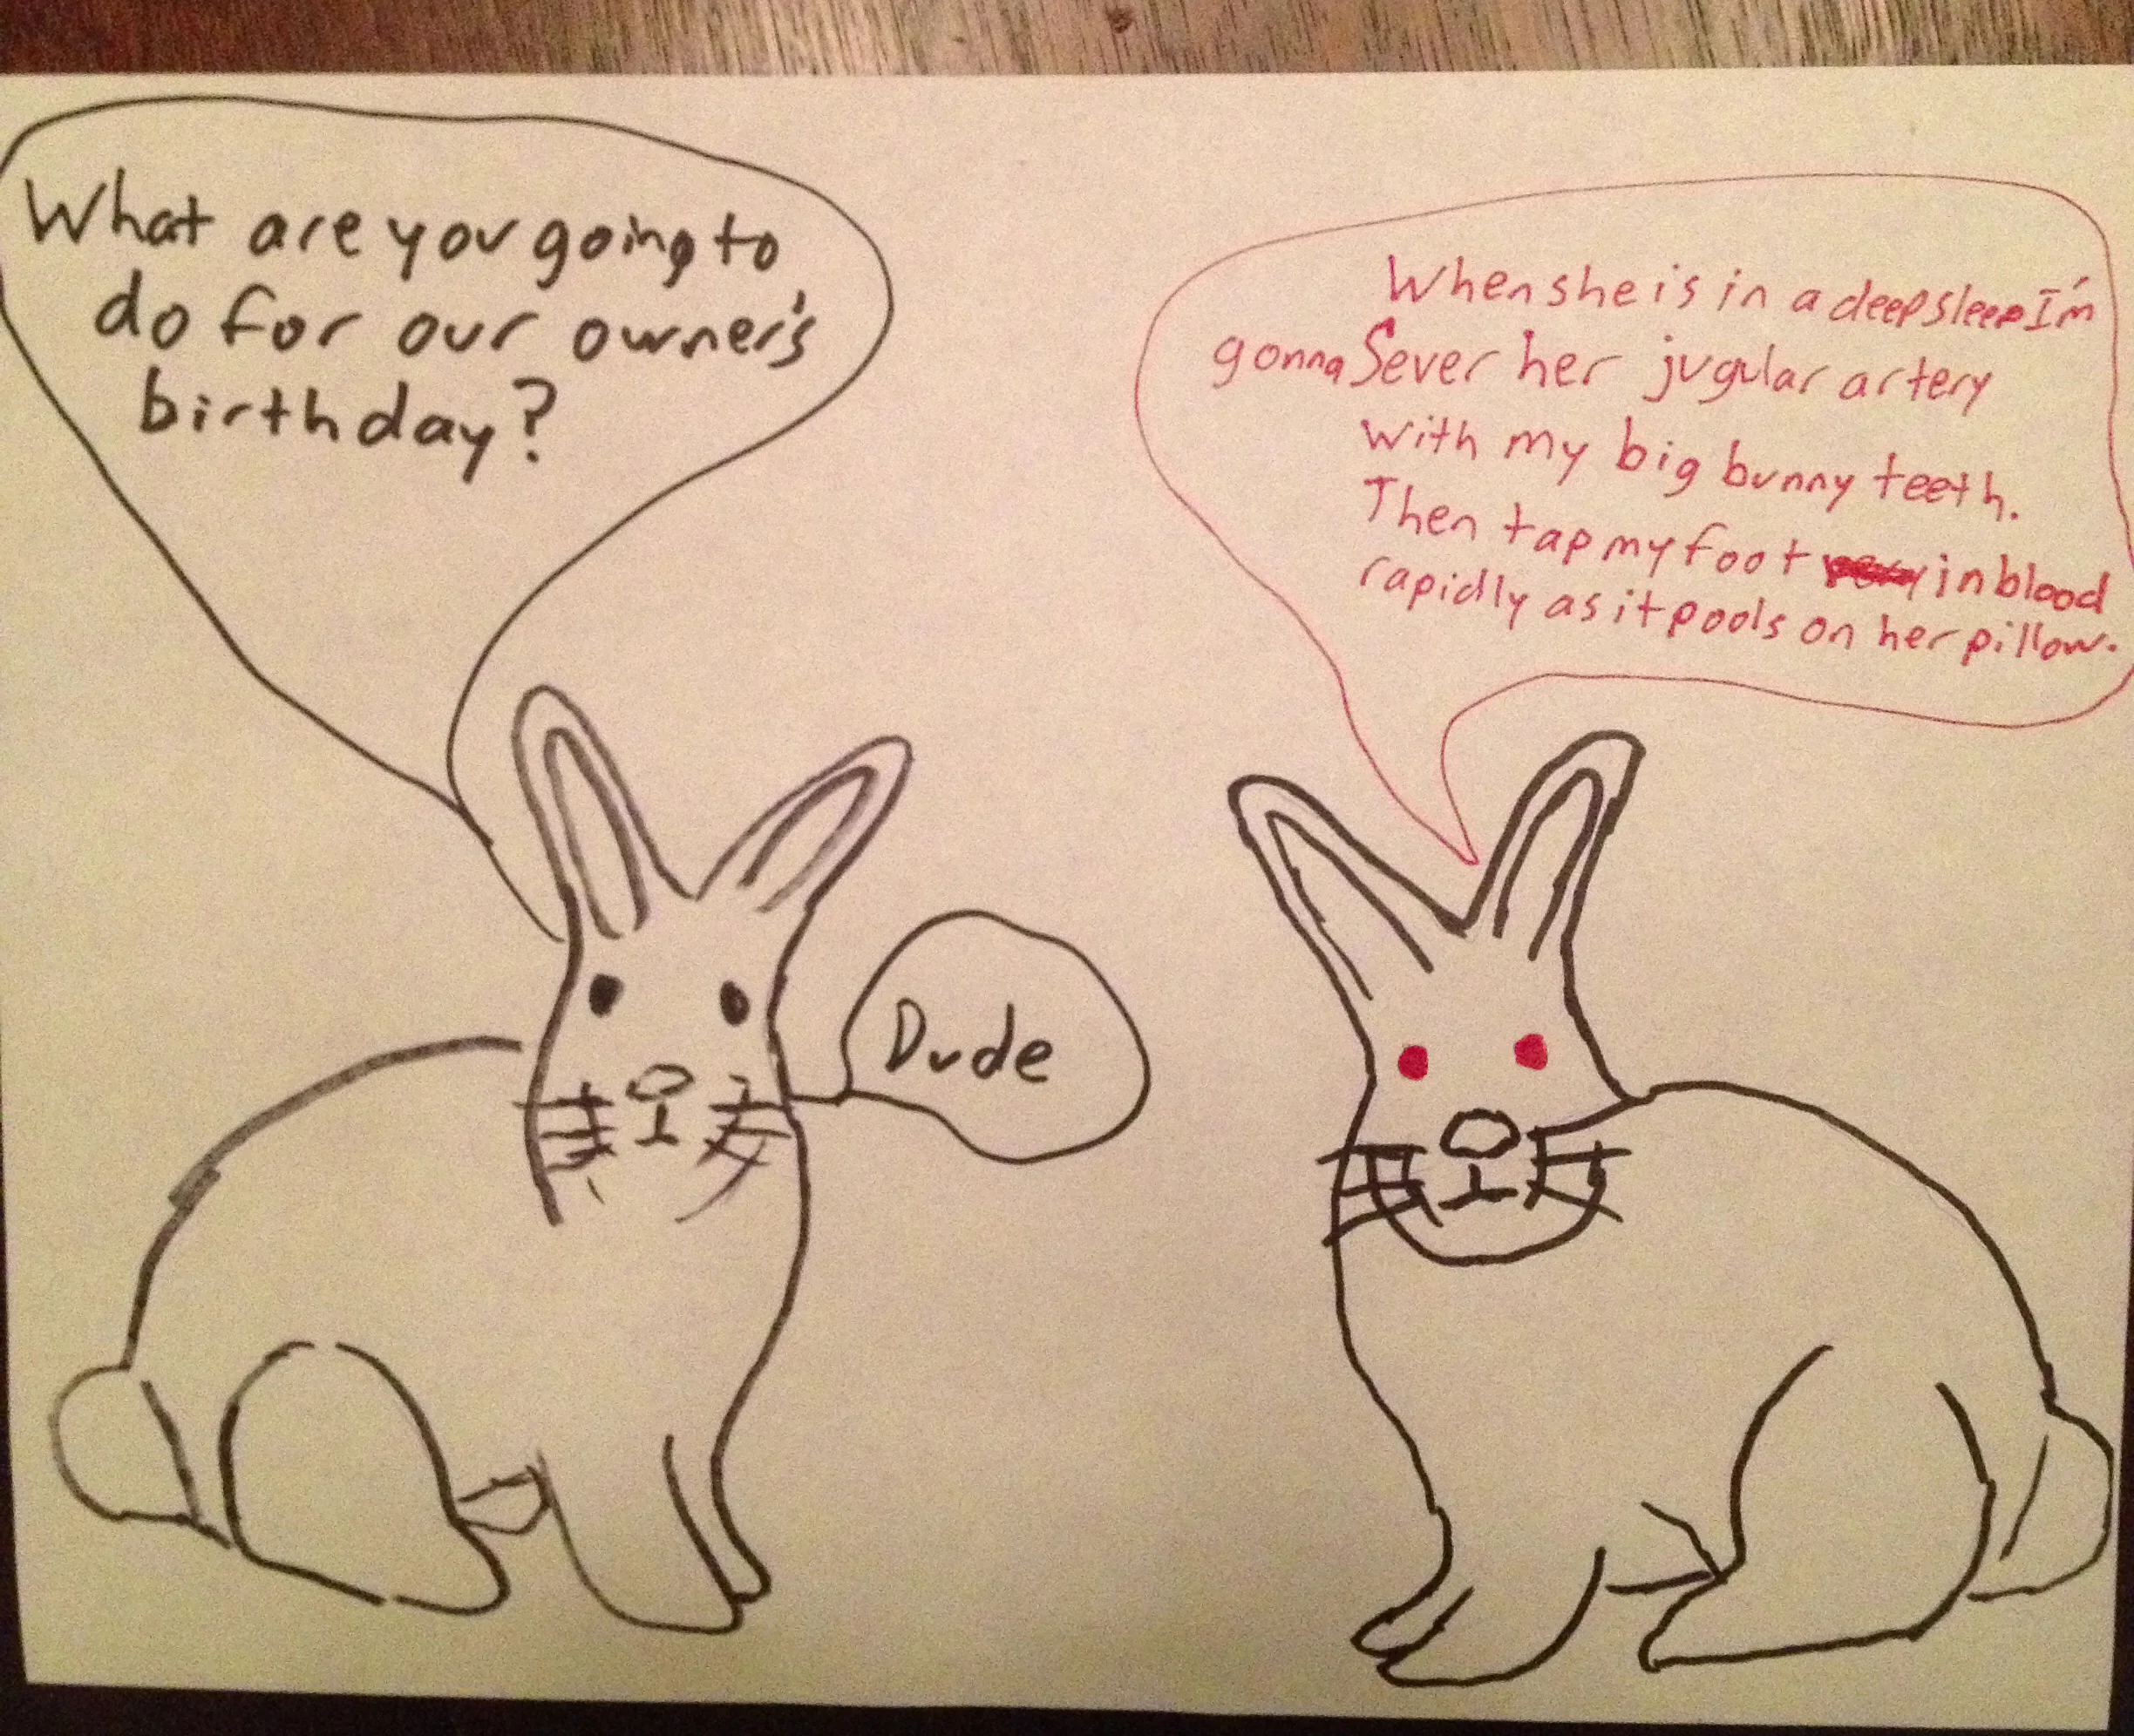 What are you going to
do for our owner's
birthday?
When she is in a deep sleep I'm
gonna Sever her jugular artery
with my big bunny teeth.
Then tap my foot in blood
rapidly as it pools on her pillow.
Dude